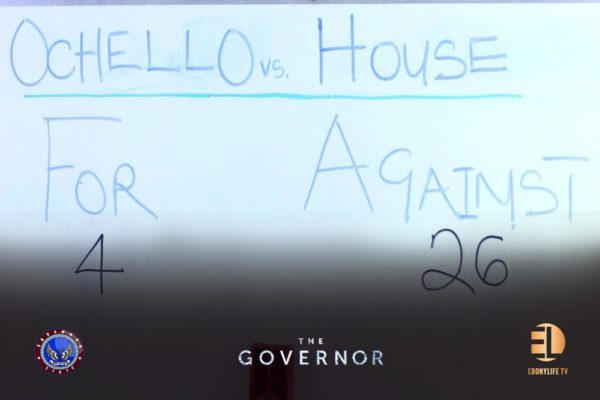 OCHELLO vs. HOUSE
FOR AGAINST
4 26
THE
GOVERNOR
EL
EBONYLIFE TV